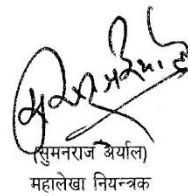 (सुमनराज अर्याल)
महालेखा नियन्त्रक